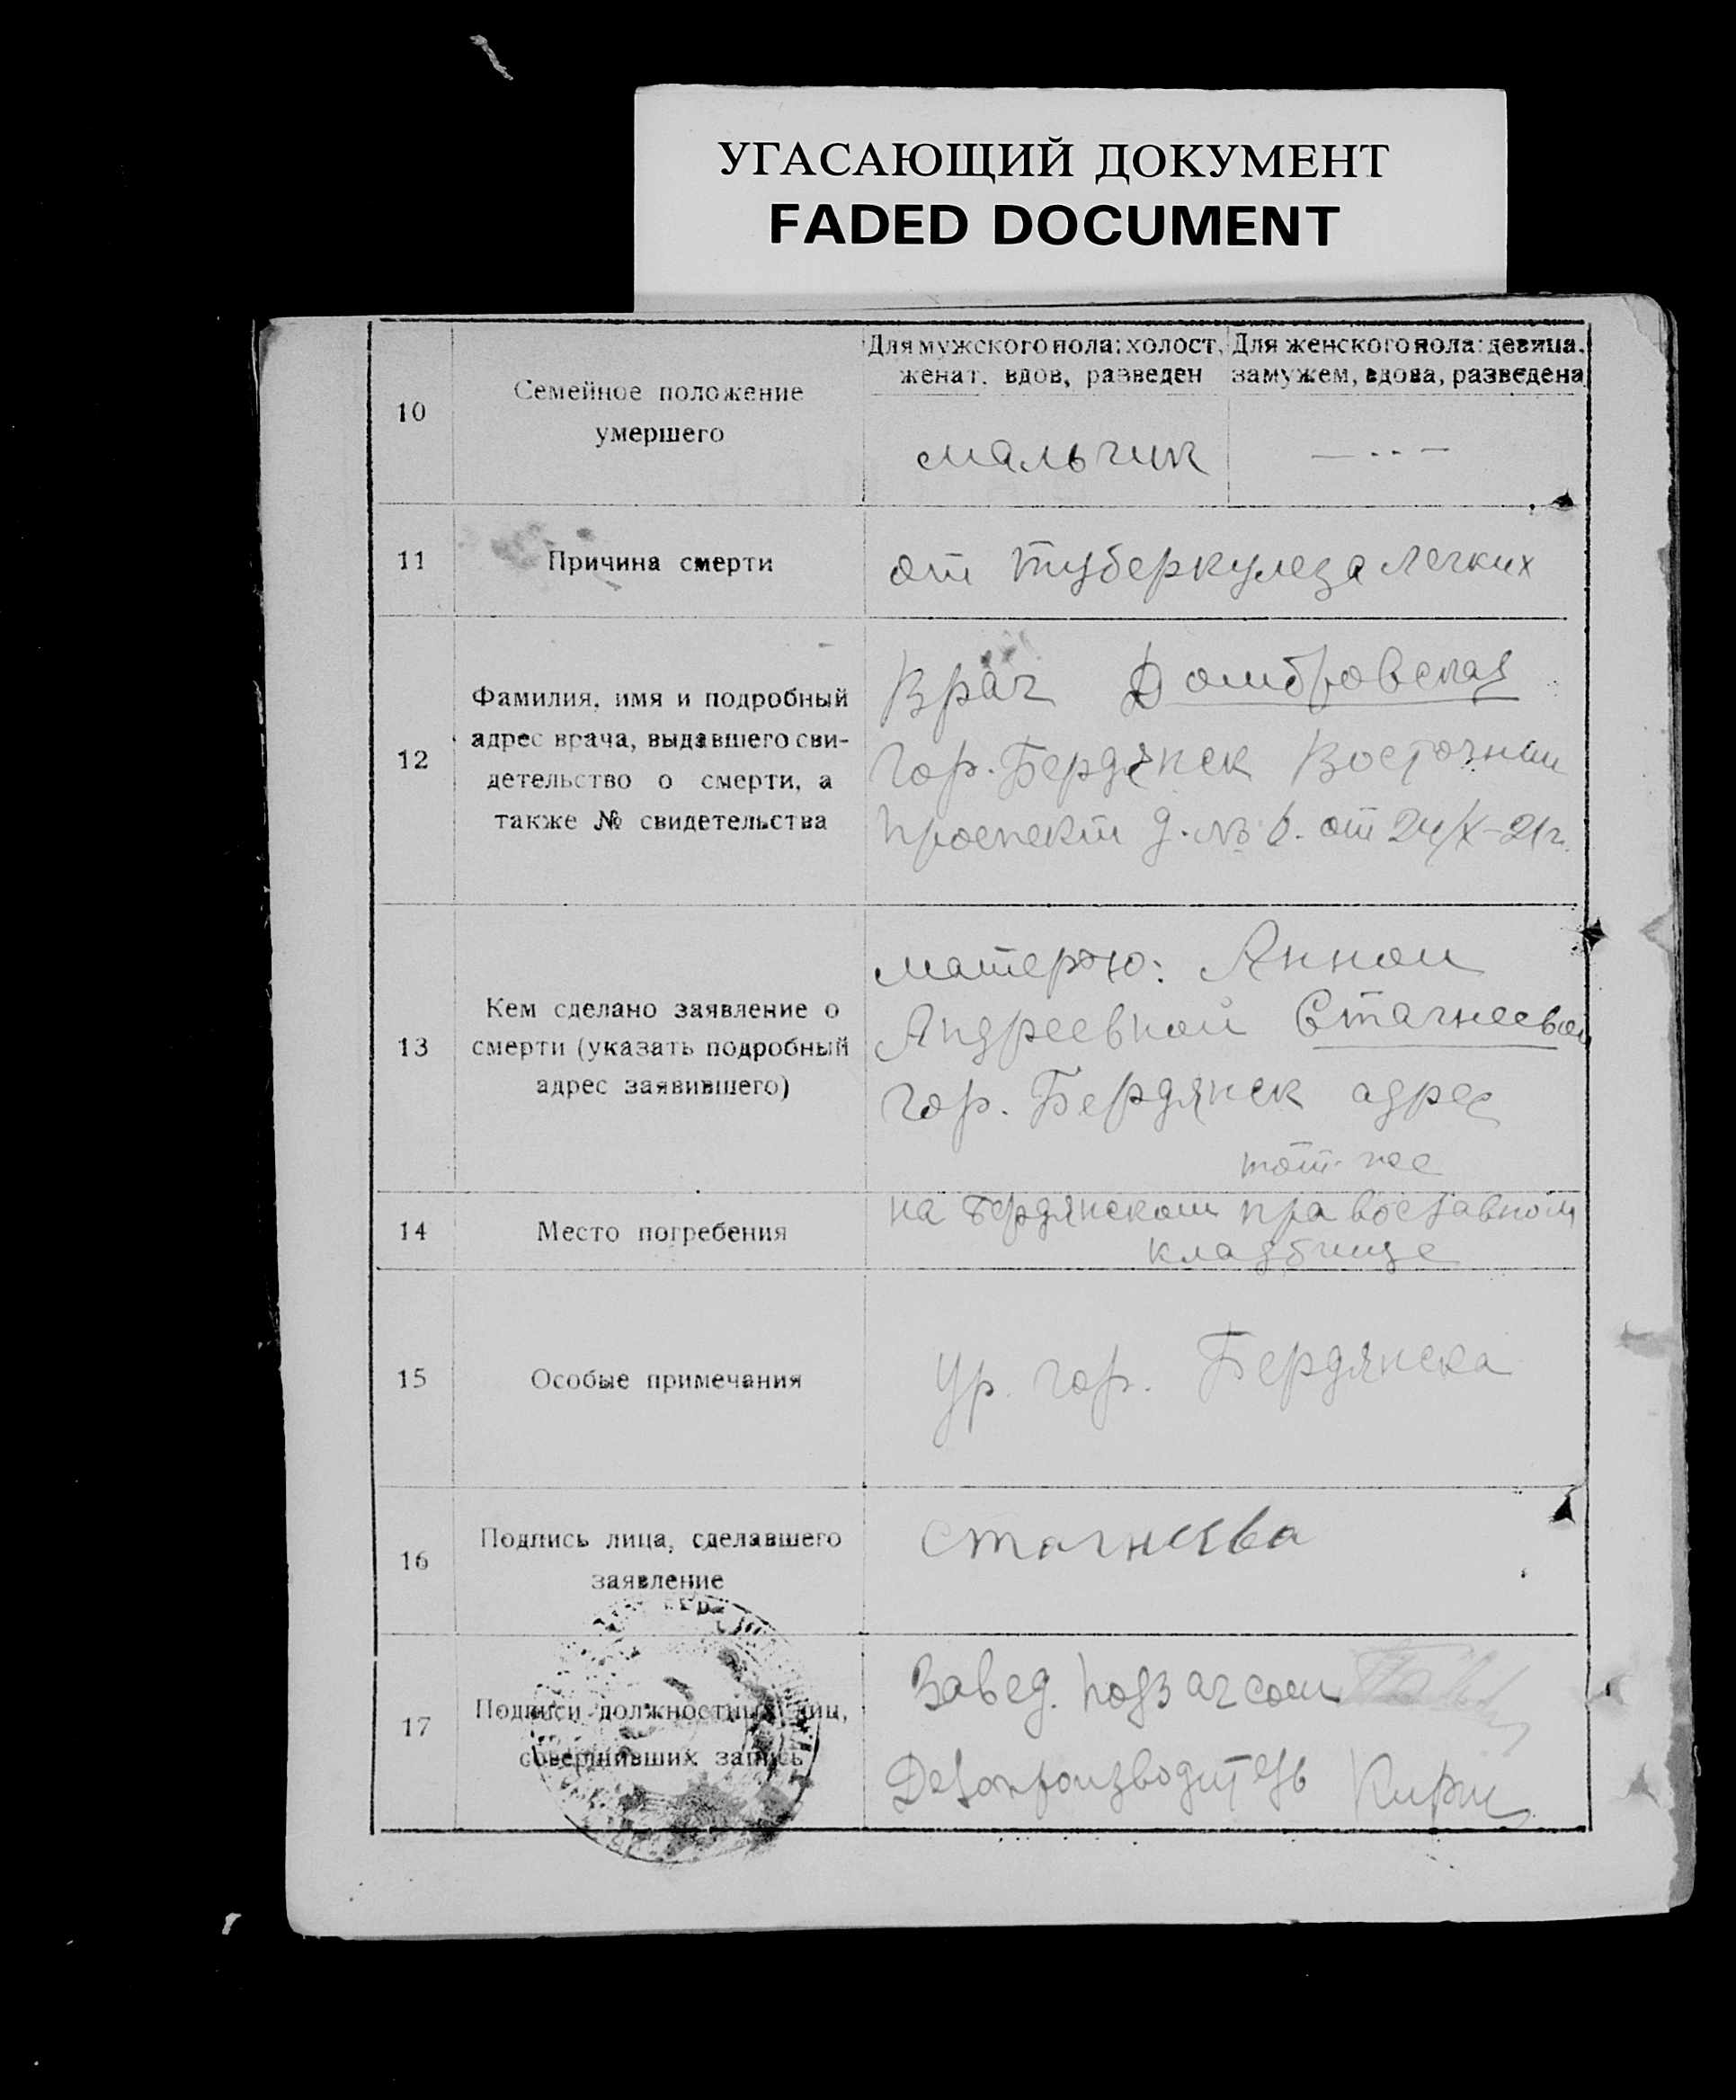 УГАСАЮЩИЙ ДОКУМЕНТ
FADED DOCUMENT
10
Семейное положение
умершего
Для мужского пола: холост,
женат, вдов, разведен
Для женского пола: девица,
замужем, вдова, разведена
мальчик
— . . —
11
Причина смерти
от туберкулеза легких
12
Фамилия, имя и подробный
адрес врача, выдавшего сви-
детельство о смерти, а
также № свидетельства
Врач Домбровская
Гор. Бердянск Восточный
проспект д. № 6. от 24/X-21г.
13
Кем сделано заявление о
смерти (указать подробный
адрес заявившего)
матерью: Анной
Андреевной Стагнеевой
гор. Бердянск адрес
тот-же
14
Место погребения
на Бердянском православном
кладбище
15
Особые примечания
Ур. гор. Бердянска
16
Подпись лица, сделавшего
заявление
Стагнеева
17
Подписи должностных лиц,
совершивших запись
Завед. подзагсом
Делопроизводитель